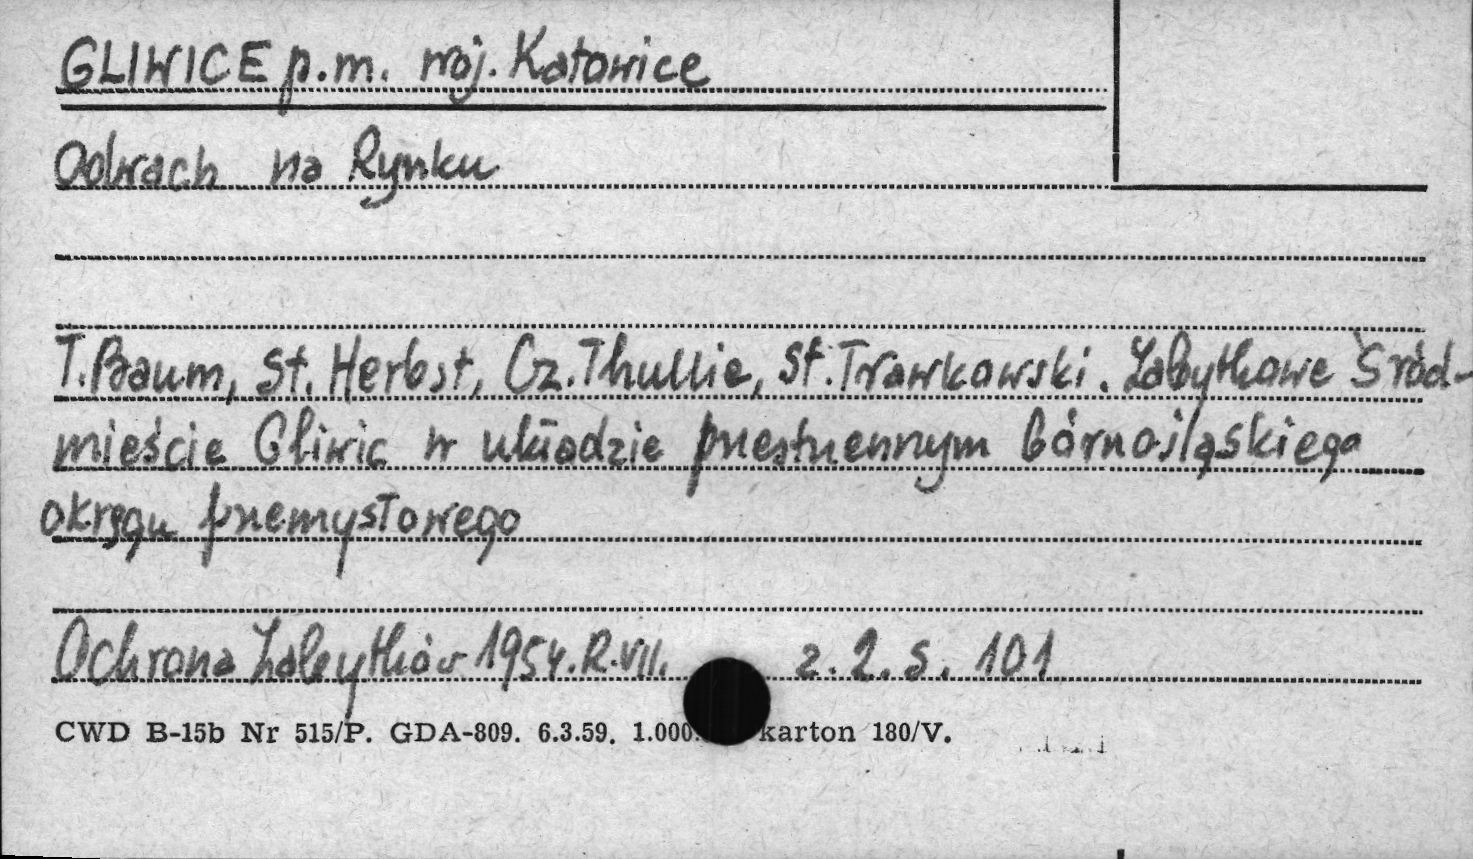 GLIWICE p.m. woj. Katowice
Odwach na Rynku
T. Baum, St. Herbst, Cz. Thullie, St. Trawkowski. Zabytkowe Śród-
mieście Gliwic w układzie przestrzennym Górnośląskiego
okręgu przemysłowego
Ochrona Zabytków 1954. R. VII. z. 2. s. 101
CWD B-15b Nr 515/P. GDA-809. 6.3.59. 1.000. karton 180/V.